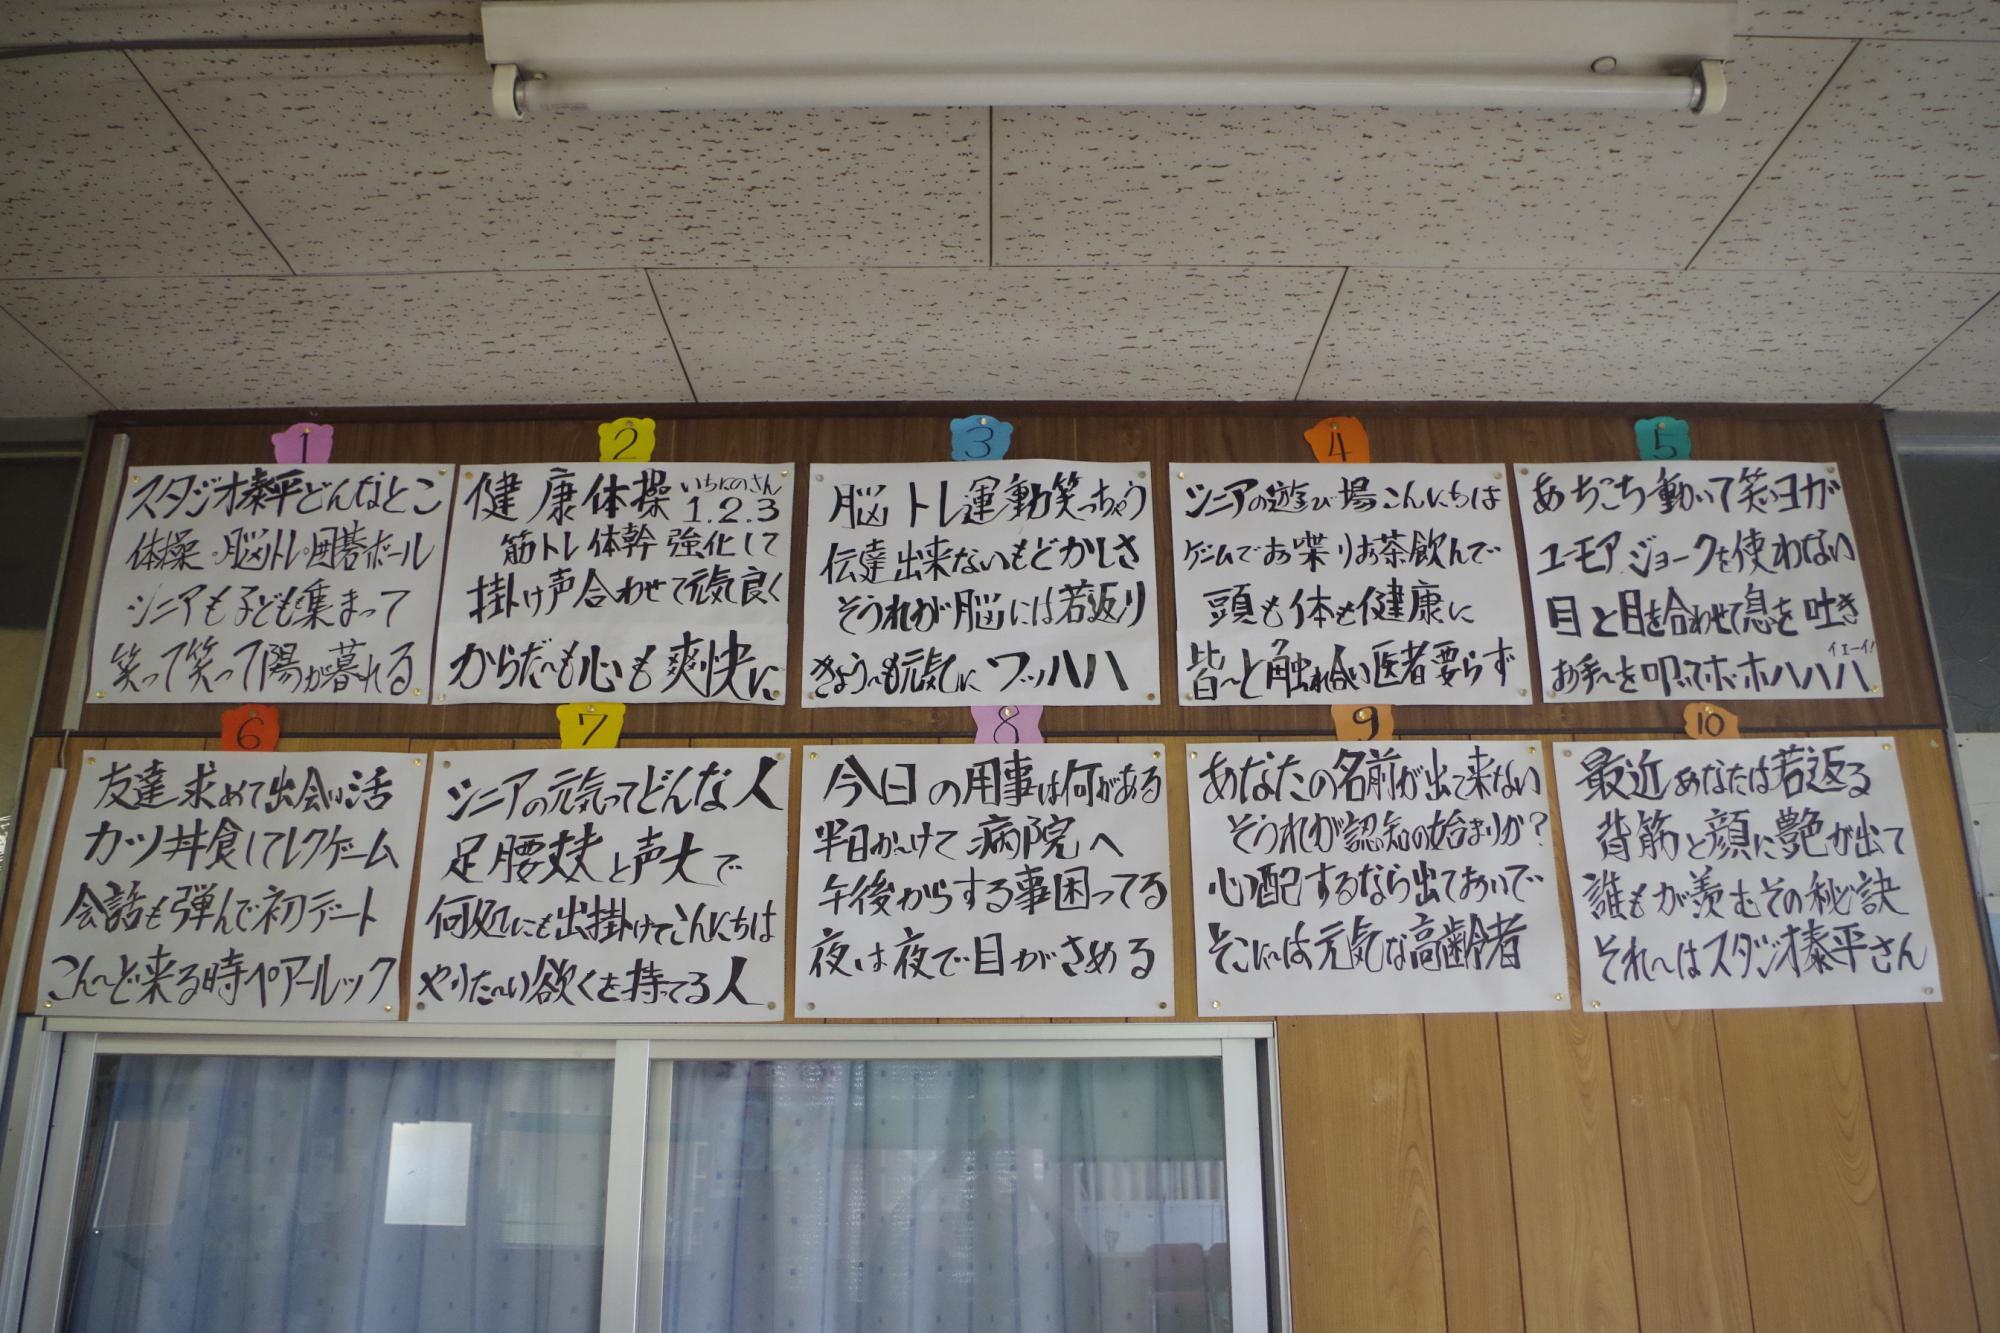 1
スタジオ泰平どんなとこ
体操・脳トレ・囲碁ボール
シニアも子ども集まって
笑って笑って陽が暮れる
2
健康体操いちにのさん
1.2.3
筋トレ体幹強化して
掛け声合わせて元気良く
からだ〜も心も爽快に
3
脳トレ運動笑っちゃう
伝達出来ないもどかしさ
そうれが脳には若返り
きょう〜も元気にワッハハ
4
シニアの遊び場こんにちは
ゲームでお喋りお茶飲んで
頭も体も健康に
皆〜と触れ合い医者要らず
5
あちこち動いて笑いヨガ
ユーモアジョークを使わない
目と目を合わせて息を吐き
お手〜を叩いてホホハハハ
イエーイ!
6
友達求めて出会い活
カツ丼食してレクゲーム
会話も弾んで初デート
こん〜ど来る時ペアールック
7
シニアの元気ってどんな人
足腰丈夫と声大で
何処にも出掛けてこんにちは
やりた〜い欲くを持ってる人
8
今日の用事は何がある
半日か〜けて病院へ
午後からする事困ってる
夜は夜で目がさめる
9
あなたの名前が出て来ない
そうれが認知の始まりか?
心配するなら出ておいで
そこに〜は元気な高齢者
10
最近あなたは若返る
背筋と顔に艶が出て
誰もが羨むその秘訣
それ〜はスタジオ泰平さん